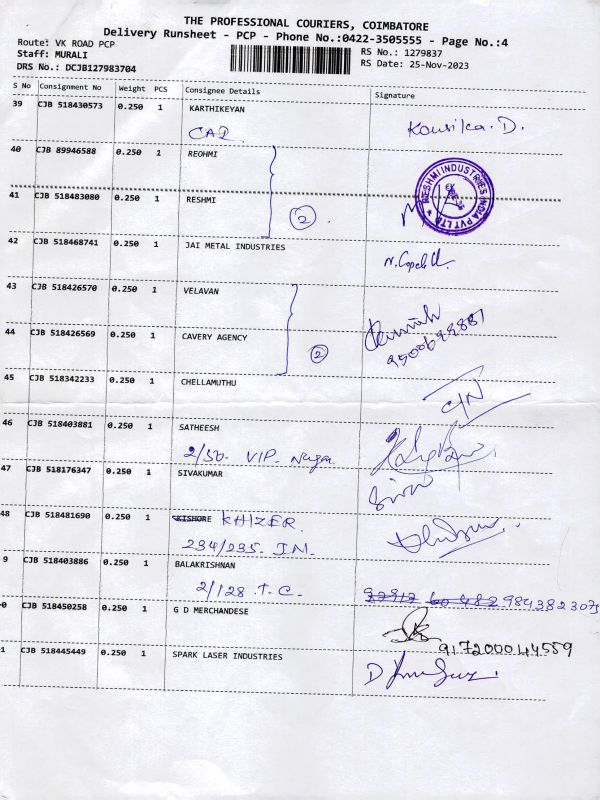 THE PROFESSIONAL COURIERS, COIMBATORE
Delivery Runsheet - PCP - Phone No.:0422-3505555 - Page No.:4
Route: VK ROAD PCP
Staff: MURALI
DRS No.: DCJB127983704
RS No.: 1279837
RS Date: 25-Nov-2023
S No Consignment No Weight PCS Consignee Details Signature
39 CJB 518430573 0.250 1 KARTHIKEYAN
Kousika.D.
40 CJB 89946588 0.250 1 REOHMI
RESHMI INDUSTRIES INDIA PVT LTD
41 CJB 518483080 0.250 1 RESHMI
2
42 CJB 518468741 0.250 1 JAI METAL INDUSTRIES
43 CJB 518426570 0.250 1 VELAVAN
44 CJB 518426569 0.250 1 CAVERY AGENCY
2
45 CJB 518342233 0.250 1 CHELLAMUTHU
46 CJB 518403881 0.250 1 SATHEESH
2/50. VIP. Nagar
47 CJB 518176347 0.250 1 SIVAKUMAR
48 CJB 518481690 0.250 1 KISHORE KHIZER.
234/235. JN.
9 CJB 518403886 0.250 1 BALAKRISHNAN
2/128 T.C. 9843823075
0 CJB 518450258 0.250 1 G D MERCHANDESE
917200044559
1 CJB 518445449 0.250 1 SPARK LASER INDUSTRIES